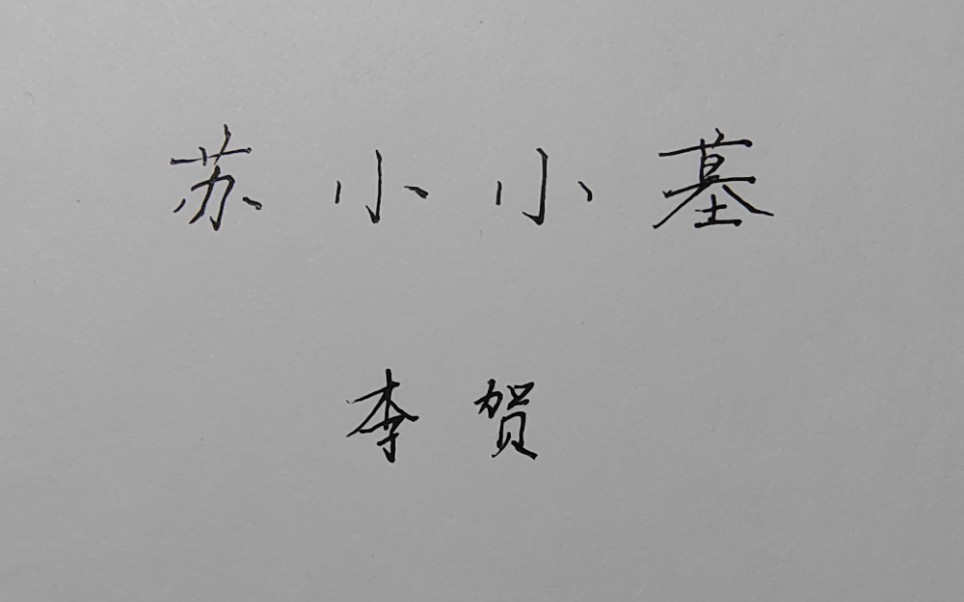 苏小小墓
李贺